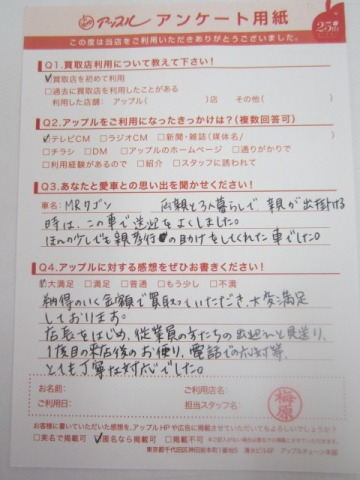 アップル アンケート用紙 25th
この度は当店をご利用いただきありがとうございました。
Q1.買取店利用について教えて下さい!
☑買取店を初めて利用
□過去に買取店を利用したことがある
利用した店舗: アップル( )店 その他( )
Q2.アップルをご利用になったきっかけは?(複数回答可)
☑テレビCM □ラジオCM □新聞・雑誌(媒体名/ )
□チラシ □DM □アップルのホームページ □通りがかりで
□利用経験があるので □紹介 □スタッフに誘われて
Q3.あなたと愛車との思い出を聞かせください!
車名: MRワゴン 両親と3人暮らしで、親が出掛ける
時は、この車で送迎をよくしました。
ほんの少しでも親孝行の助けをしてくれた車でした。
Q4.アップルに対する感想をぜひお書きください!
☑大満足 □満足 □普通 □もう少し □不満
納得のいく金額で買取っていただき、大変満足
しております。
店長をはじめ、従業員の方たちの出迎えと見送り、
1度目の来店後のお便り、電話での応対等、
とても丁寧な対応でした。
お名前: ご利用店名:
ご利用日: 担当スタッフ名: 梅原
お客様に書いていただいた感想を、アップルHPや広告に掲載させていただいてもよろしいでしょうか?
□実名で掲載可 ☑匿名なら掲載可 □掲載不可
アップルチェーン本部